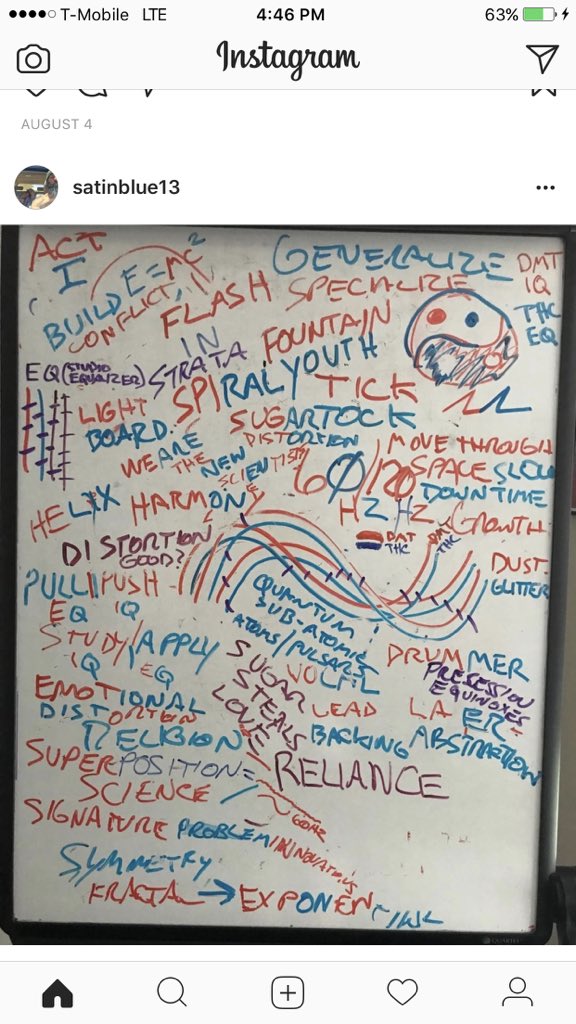 T-Mobile LTE 4:46 PM 63%
Instagram
AUGUST 4
satinblue13
ACT
I
BUILD E=MC²
CONFLICT
GENERALIZE
SPECIALIZE
DMT
IQ
THC
EQ
FLASH
IN
STRATA
FOUNTAIN
YOUTH
EQ (STUDIO EQUALIZER)
SPIRAL
TICK
TOCK
LIGHT
BOARD
SUGAR
DISTORTION
WE ARE
THE
NEW
SCIENTISTS
60/120
HZ HZ
MOVE THROUGH
SPACE SLOW
DOWN TIME
GROWTH
HELIX HARMONY
DISTORTION
GOOD?
DMT
THC
DMT
THC
DUST
GLITTER
PULL/PUSH
EQ IQ
STUDY/APPLY
IQ EQ
QUANTUM
SUB-ATOMIC
ATOMS/PULSARS
DRUMMER
EMOTIONAL
DISTORTION
SUGAR
STEALS
LOVE
LEAD
BACKING
LA ER
EQUINOXES
ABSTRACTION
RELIGION
SUPERPOSITION=
SCIENCE
RELIANCE
SIGNATURE PROBLEM/INNOVATIONS
SYMMETRY
FRACTAL → EXPONENTIAL
QUARTET